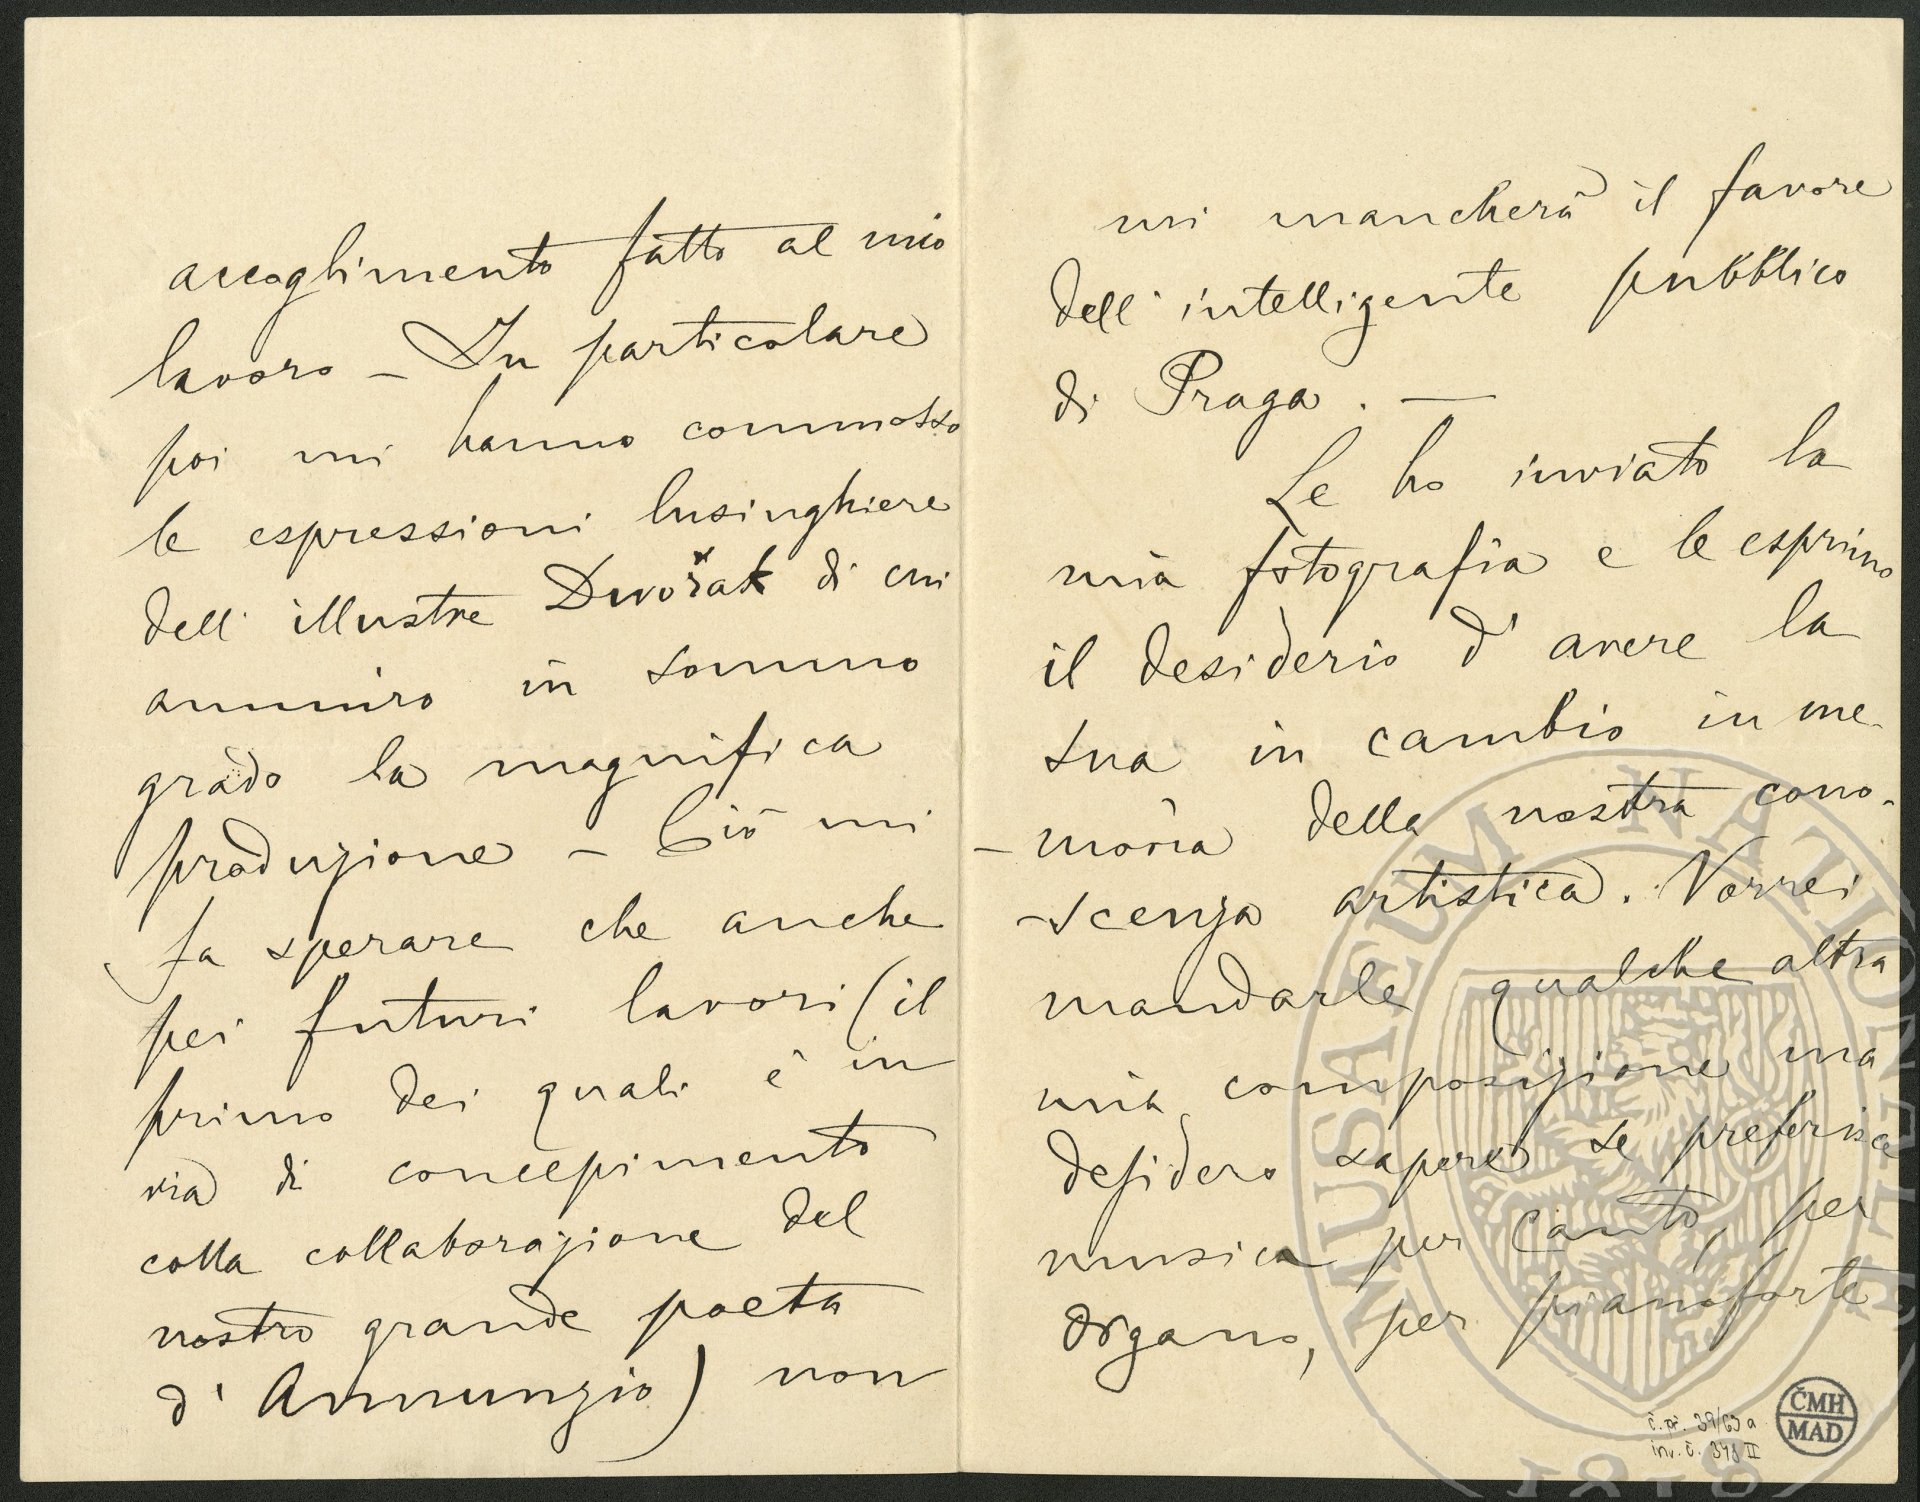 accoglimento fatto al mio
lavoro – In particolare
poi mi hanno commosso
le espressioni lusinghiere
dell' illustre Dvořak di cui
ammiro in sommo
grado la magnifica
produzione – Ciò mi
fa sperare che anche
pei futuri lavori (il
primo dei quali è in
via di concepimento
colla collaborazione del
nostro grande poeta
d' Annunzio) non
mi mancherà il favore
dell' intelligente pubblico
di Praga. —
Le ho inviato la
mia fotografia e le esprimo
il desiderio d' avere la
sua in cambio in me-
-moria della nostra cono-
-scenza artistica. Vorrei
mandarle qualche altra
mia composizione ma
desidero sapere se preferisce
musica per canto, per
organo, per pianoforte
č. př. 39/63 a
inv. č. 348 II
ČMH
MAD
MUSAEUM NATIONALE
1818